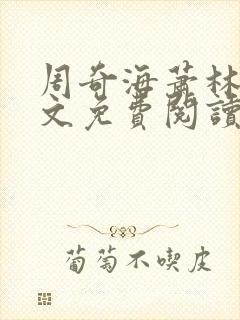 周奇海蕭林
文免費閱讀
葡萄不喫皮